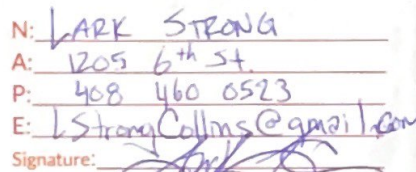 N: LARK STRONG
A: 1205 6th St.
P: 408 460 0523
E: LStrongCollins@gmail.com
Signature: